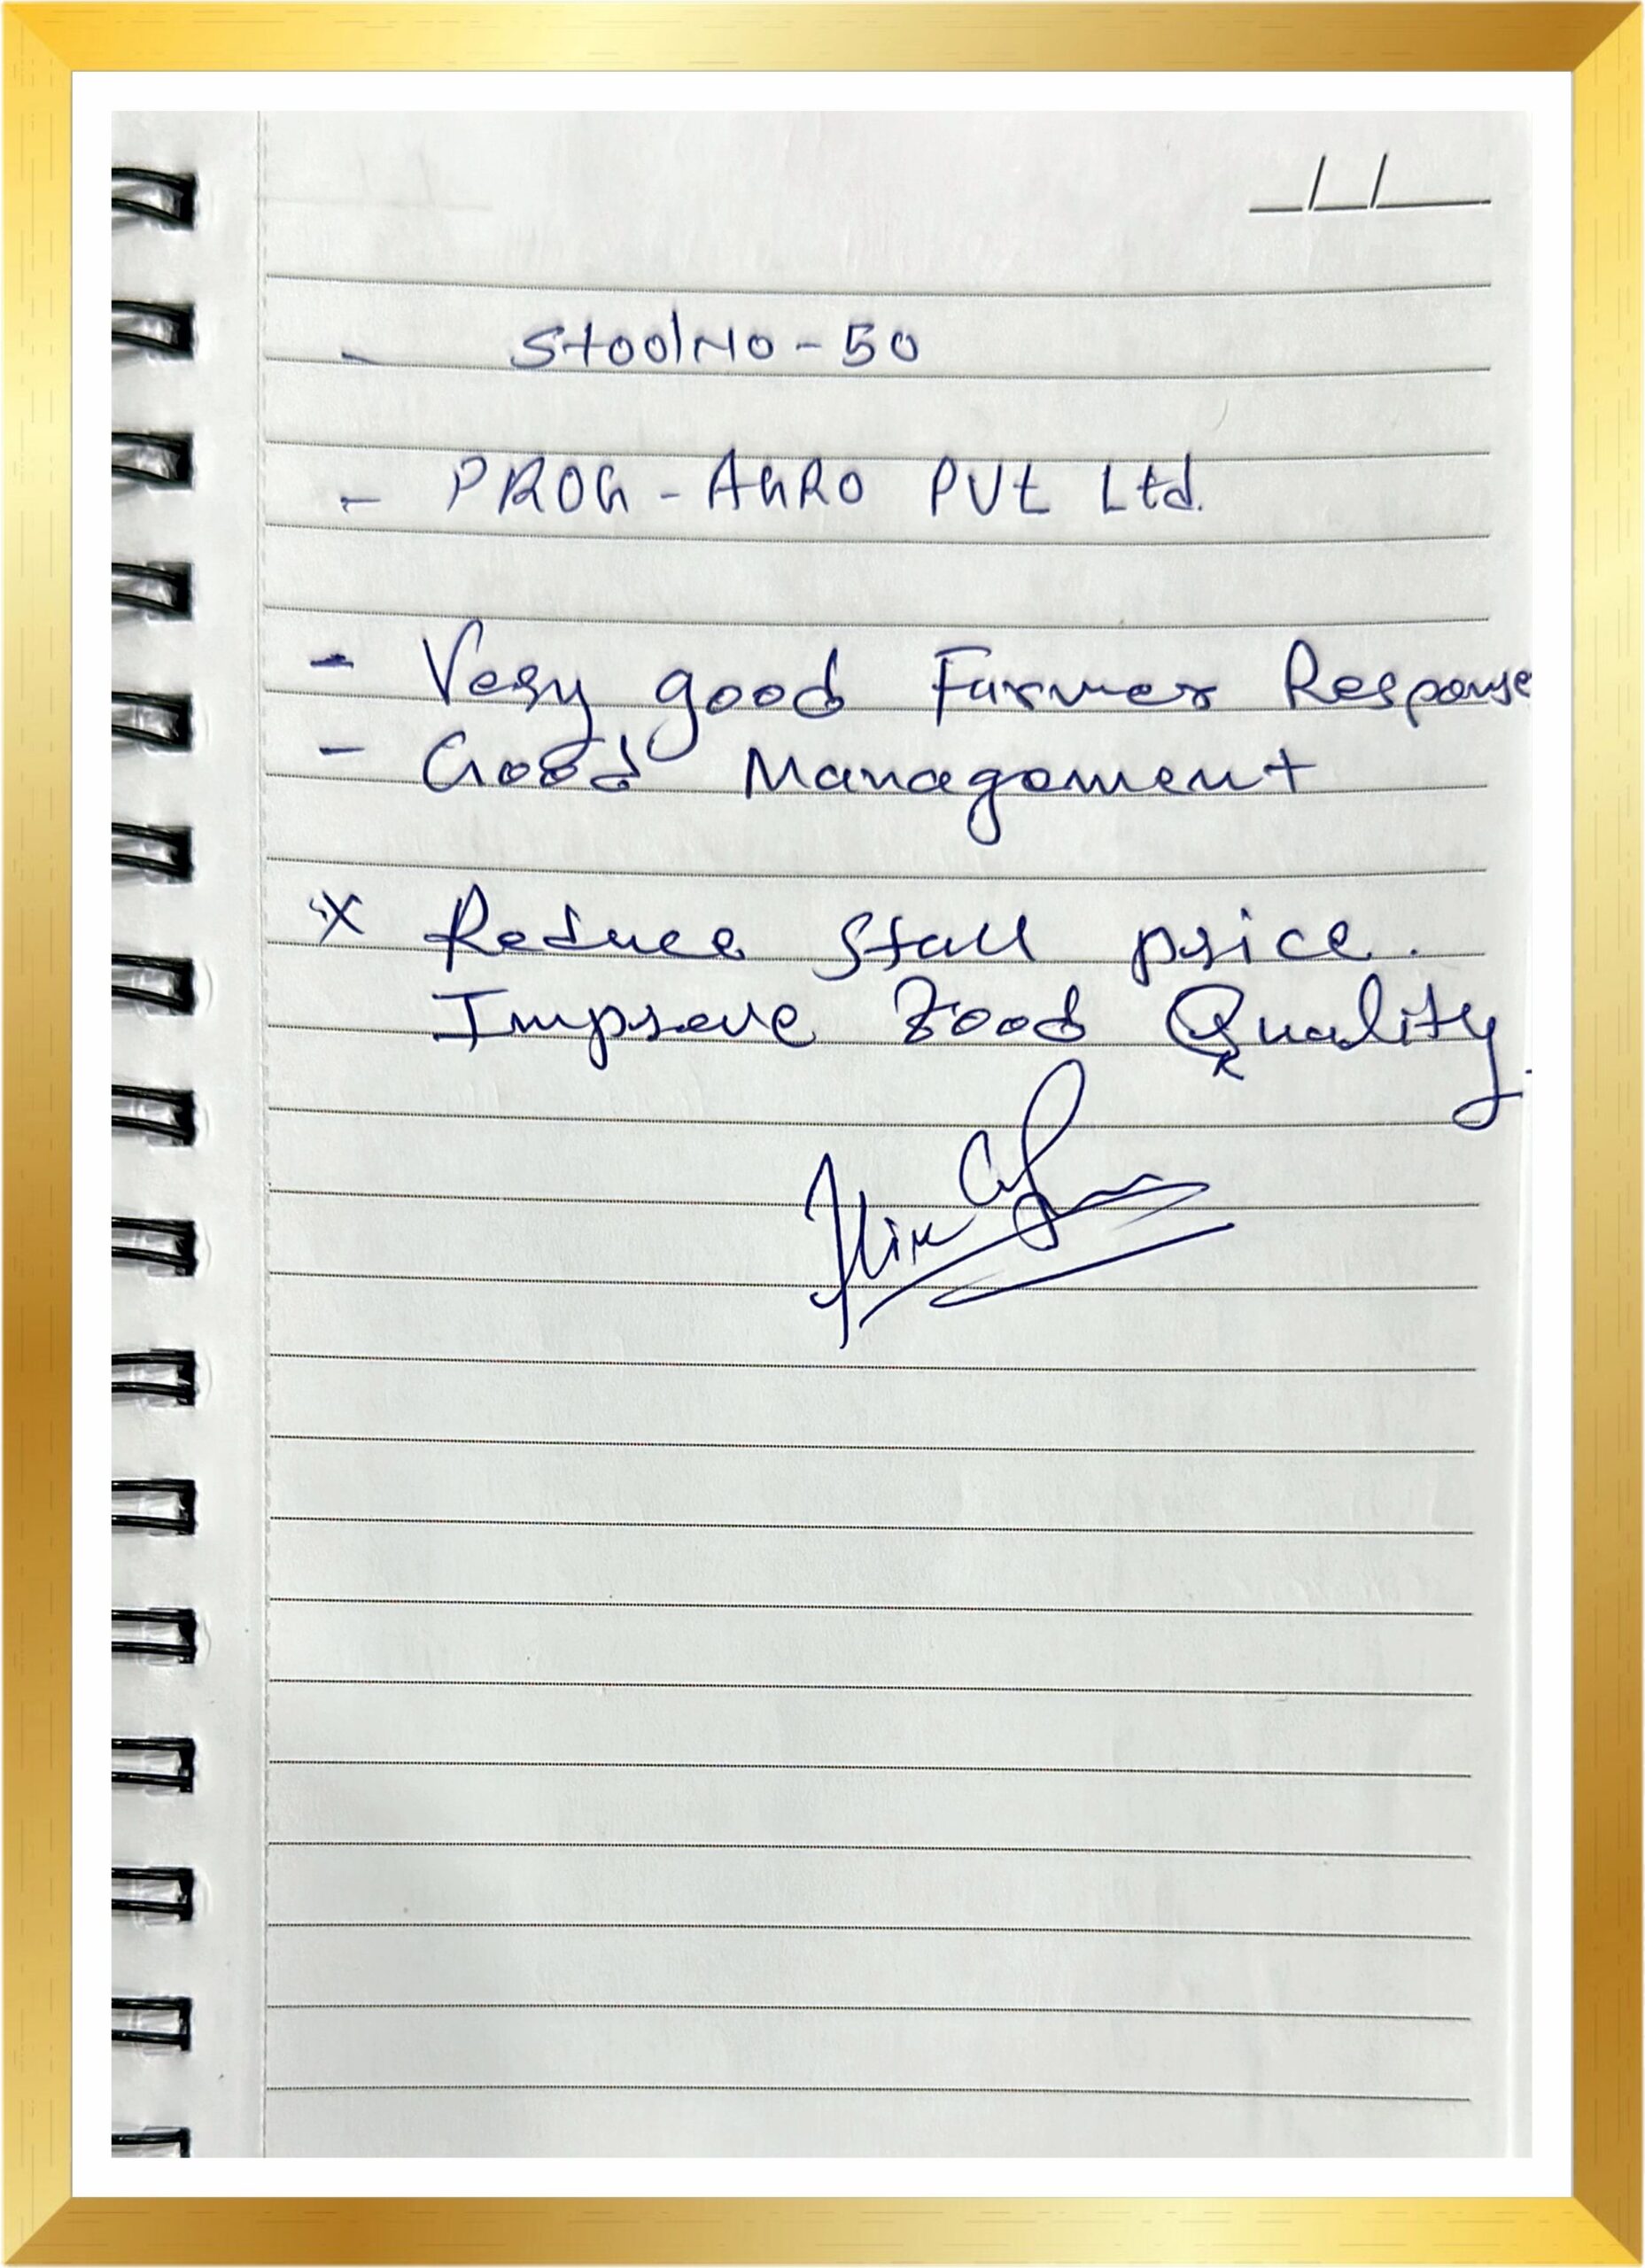 - StoolNo - 50
- PROG - AGRO PVt Ltd.
- Very good Farmer Response
- Good Management
x Reduce Stall price.
Improve Food Quality.